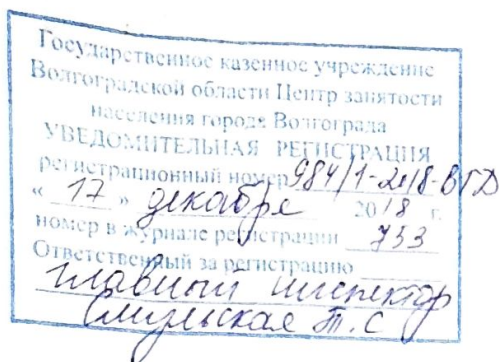 Государственное казенное учреждение
Волгоградской области Центр занятости
населения города Волгограда
УВЕДОМИТЕЛЬНАЯ РЕГИСТРАЦИЯ
регистрационный номер 984/1-2018-ВГД
« 17 » декабря 2018 г.
номер в журнале регистрации 733
Ответственный за регистрацию
главный инспектор
Т. С